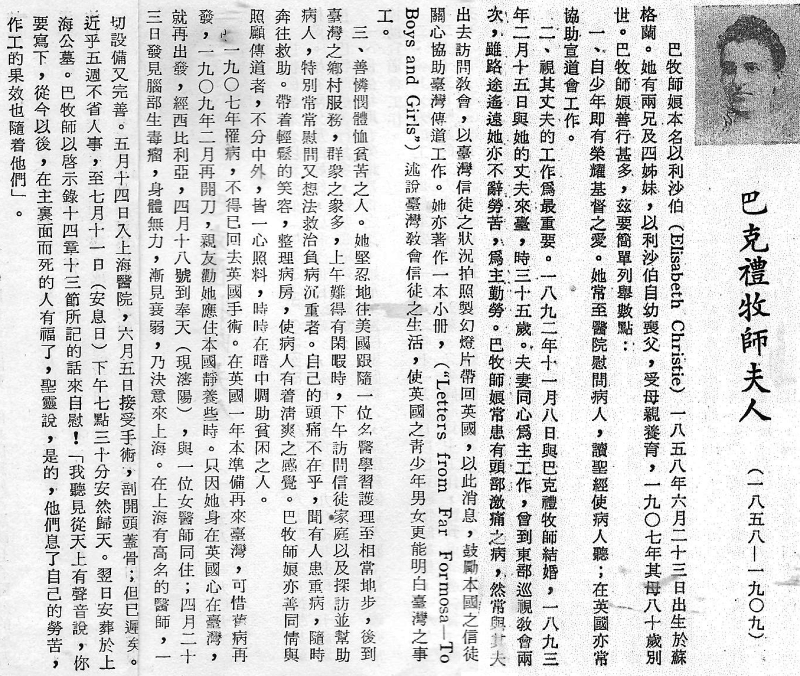 巴克禮牧師夫人
（一八五八－一九〇九）
巴牧師娘本名以利沙伯（Elisabeth Christie）一八五八年六月二十三日出生於蘇
格蘭。她有兩兄及四姊妹，以利沙伯自幼喪父，受母親養育，一九〇七年其母八十歲別
世。巴牧師娘善行甚多，茲要簡單列舉數點：
一、自少年即有榮耀基督之愛。她常至醫院慰問病人，讀聖經使病人聽；在英國亦常
協助宣道會工作。
二、視其丈夫的工作爲最重要。一八九二年十一月八日與巴克禮牧師結婚，一八九三
年二月十五日與她的丈夫來臺，時三十五歲。夫妻同心爲主工作，曾到東部巡視教會兩
次，雖路途遙遠她亦不辭勞苦，爲主勤勞。巴牧師娘常患有頭部激痛之病，然常與其夫
出去訪問教會，以臺灣信徒之狀況拍照製幻燈片帶回英國，以此消息，鼓勵本國之信徒
關心協助臺灣傳道工作。她亦著作一本小冊，（“Letters from Far Formosa—To
Boys and Girls”）述說臺灣教會信徒之生活，使英國之靑少年男女更能明白臺灣之事
工。
三、善憐憫體恤貧苦之人。她堅忍地往美國跟隨一位名醫學習護理至相當地步，後到
臺灣之鄉村服務，群衆之衆多，上午難得有閑暇時，下午訪問信徒家庭以及探訪並幫助
病人，特別常常慰問又想法救治負病沉重者。自己的頭痛不在乎，聞有人患重病，隨時
奔往救助。帶着輕鬆的笑容，整理病房，使病人有着淸爽之感覺。巴牧師娘亦善同情與
照顧傳道者，不分中外，皆一心照料，時時在暗中調助貧困之人。
一九〇七年罹病，不得已回去英國手術。在英國一年本準備再來臺灣，可惜舊病再
發，一九〇九年二月再開刀，親友勸她應住本國靜養些時。只因她身在英國心在臺灣，
就再出發，經西比利亞，四月十八號到奉天（現瀋陽），與一位女醫師同住；四月二十
三日發見腦部生毒瘤，身體無力，漸見衰弱，乃決意來上海。在上海有高名的醫師，一
切設備又完善。五月十四日入上海醫院，六月五日接受手術，剖開頭蓋骨；但已遲矣。
近乎五週不省人事，至七月十一日（安息日）下午七點三十分安然歸天。翌日安葬於上
海公墓。巴牧師以啓示錄十四章十三節所記的話來自慰！「我聽見從天上有聲音說，你
要寫下，從今以後，在主裏面而死的人有福了，聖靈說，是的，他們息了自己的勞苦，
作工的果效也隨着他們」。